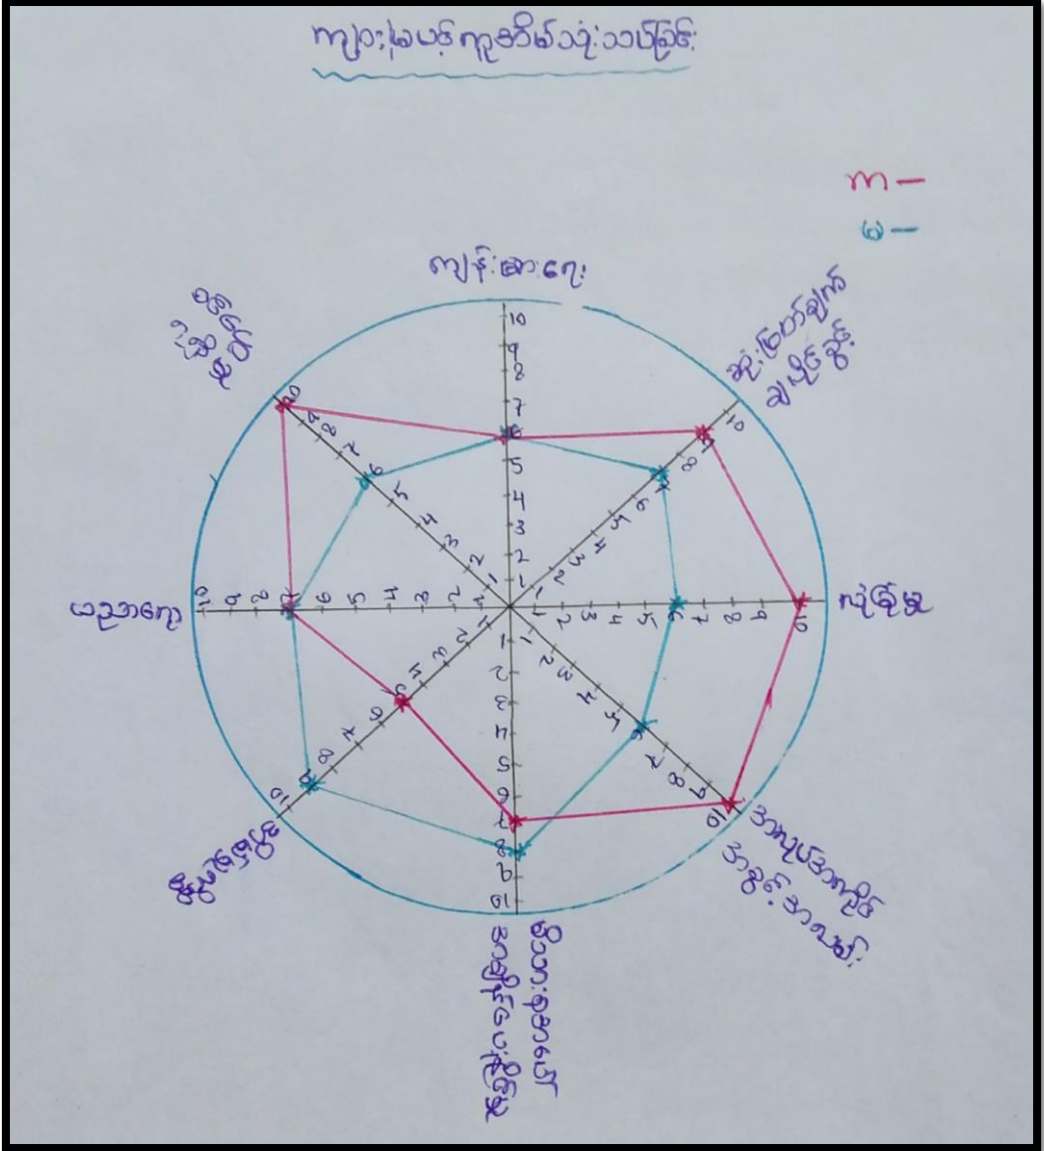 ကျား/မပင့်ကူအိမ်သုံးသပ်ခြင်း
ကျား —
မ —
ကျန်းမာရေး
ဆုံးဖြတ်ချက်
ချပိုင်ခွင့်
လုံခြုံမှု
အလုပ်အကိုင်
အခွင့်အလမ်း
မိသားစုအပေါ်
အချိန်ပေးနိုင်မှု
အိမ်မှုကိစ္စ
ပညာရေး
10
9
8
7
6
5
4
3
2
1
1
2
3
4
5
6
7
8
9
10
1
2
3
4
5
6
7
8
9
10
1
2
3
4
5
6
7
8
9
10
1
2
3
4
5
6
7
8
9
10
1
2
3
4
5
6
7
8
9
10
1
2
3
4
5
6
7
8
9
10
1
2
3
4
5
6
7
8
9
10